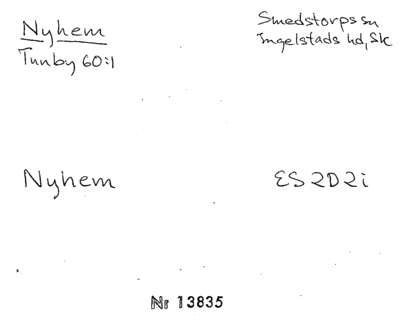 Nyhem
Tunby 60:1
Smedstorps sn
Ingelstads hd, Sk
Nyhem
ES 2D2i
Nr 13835